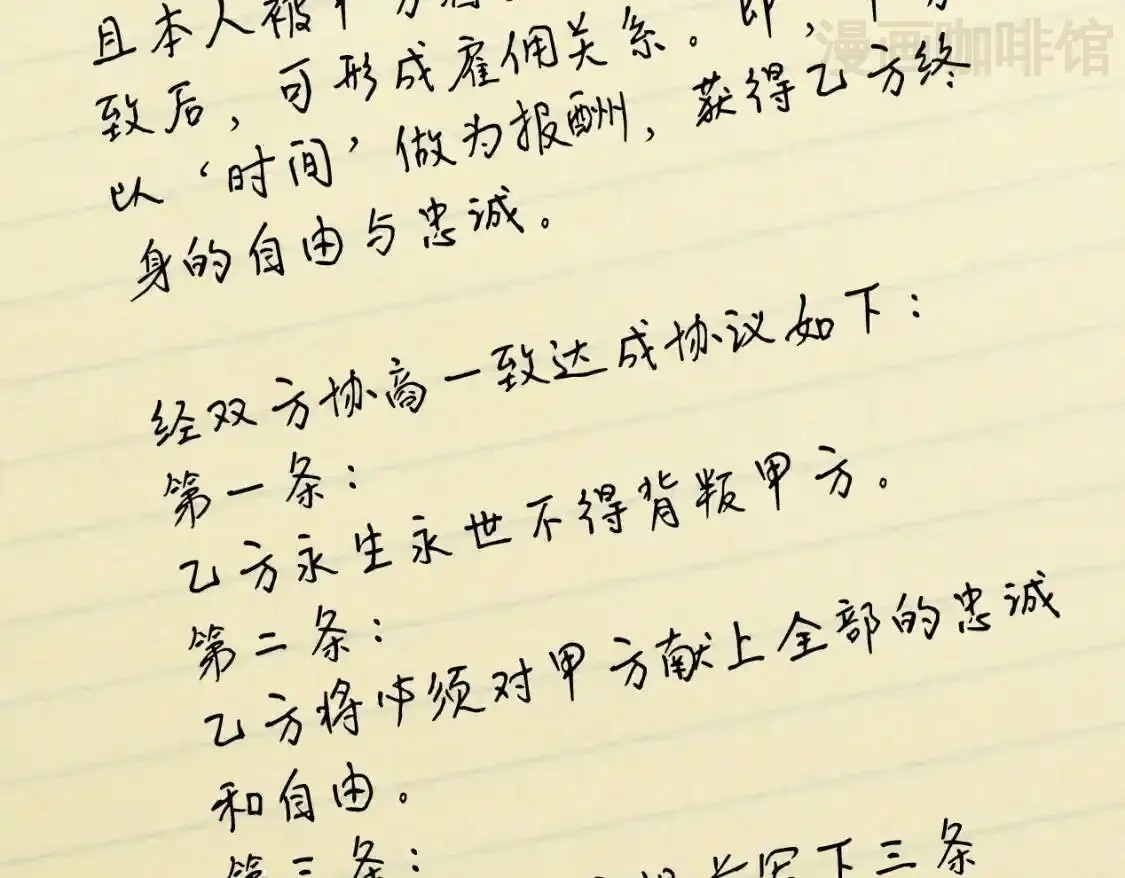 漫画咖啡馆
且本人被甲方
致后，可形成雇佣关系。即，甲方
以‘时间’做为报酬，获得乙方终
身的自由与忠诚。
经双方协商一致达成协议如下：
第一条：
乙方永生永世不得背叛甲方。
第二条：
乙方将必须对甲方献上全部的忠诚
和自由。
第三条：
下三条